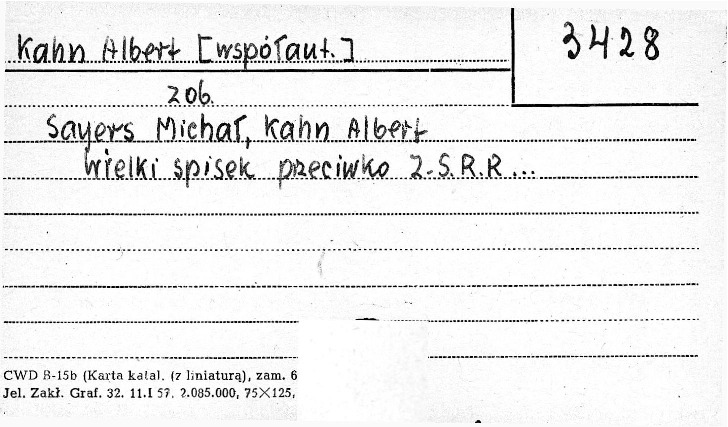 Kahn Albert [współaut.]
3428
zob.
Sayers Michał, Kahn Albert
Wielki spisek przeciwko Z.S.R.R...
CWD B-15b (Karta katal. (z liniaturą), zam. 6
Jel. Zakł. Graf. 32. 11.I 57. 2.085.000, 75×125,